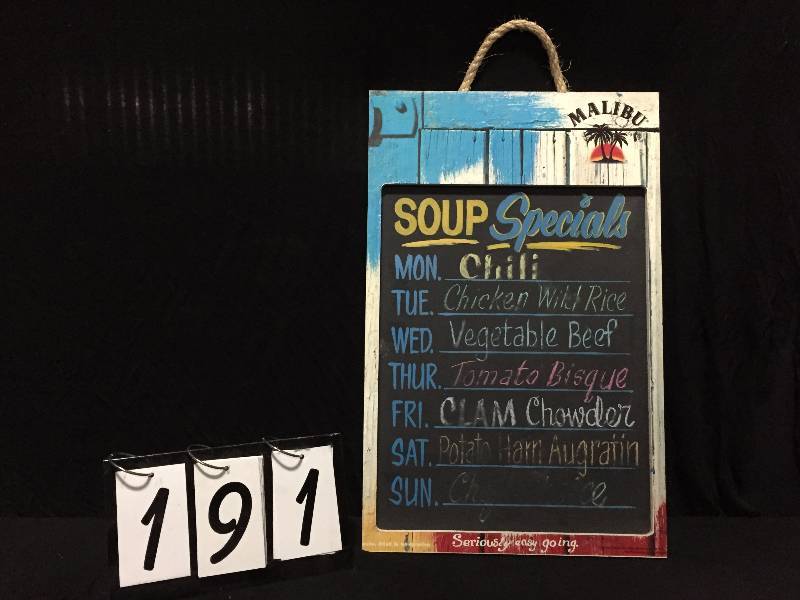 MALIBU
SOUP Specials
MON. Chili
TUE. Chicken Wild Rice
WED. Vegetable Beef
THUR. Tomato Bisque
FRI. CLAM Chowder
SAT. Potato Ham Augratin
SUN.
Seriously easy going.
191